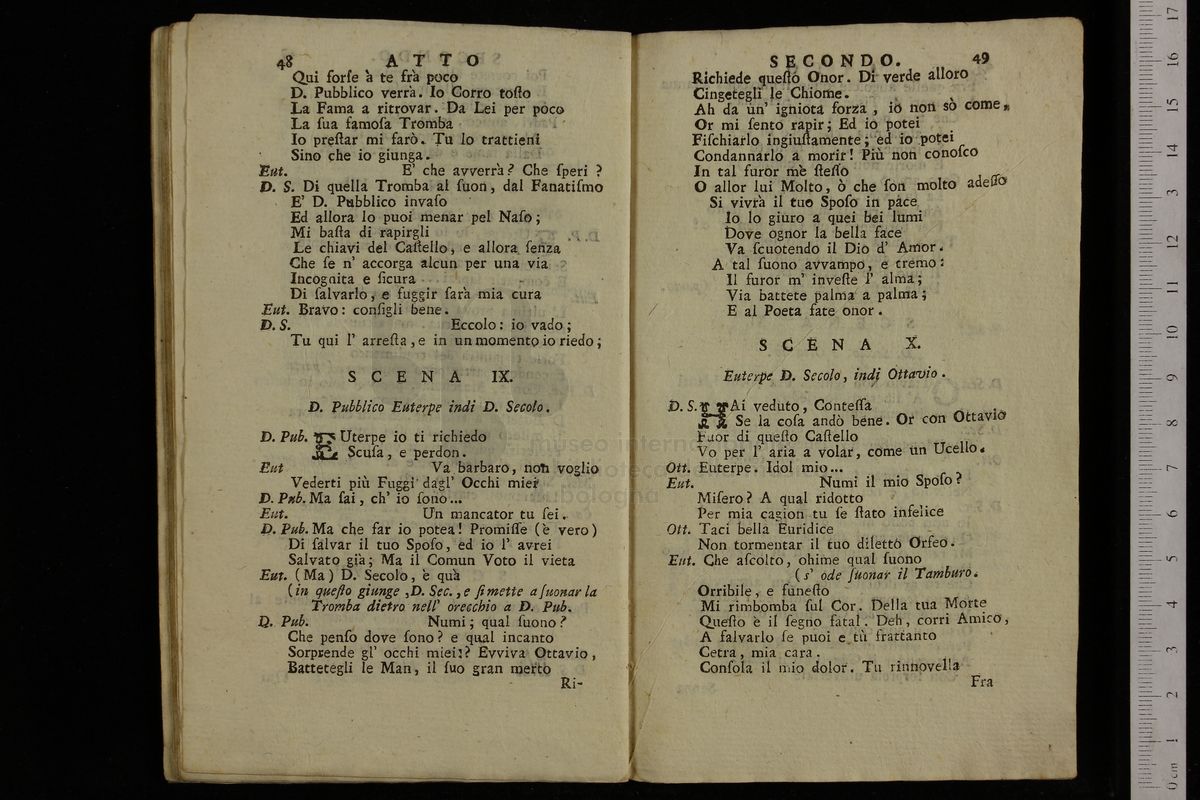 48 ATTO
Qui forſe à te frà poco
D. Pubblico verrà. Io Corro toſto
La Fama a ritrovar. Da Lei per poco
La ſua famoſa Tromba
Io preſtar mi farò. Tu lo trattieni
Sino che io giunga.
Eut. E' che avverrà? Che ſperi ?
D. S. Di quella Tromba al ſuon, dal Fanatiſmo
E' D. Pubblico invaſo
Ed allora lo puoi menar pel Naſo;
Mi baſta di rapirgli
Le chiavi del Caſtello, e allora ſenza
Che ſe n' accorga alcun per una via
Incognita e ſicura
Di ſalvarlo, e fuggir ſarà mia cura
Eut. Bravo: conſigli bene.
D. S. Eccolo: io vado;
Tu qui l' arreſta, e in un momento io riedo;
SCENA IX.
D. Pubblico Euterpe indi D. Secolo.
D. Pub. EUterpe io ti richiedo
Scuſa, e perdon.
Eut Va barbaro, non voglio
Vederti più Fuggi dagl' Occhi miei
D. Pub. Ma ſai, ch' io ſono...
Eut. Un mancator tu ſei.
D. Pub. Ma che far io potea! Promiſſe (è vero)
Di ſalvar il tuo Spoſo, ed io l' avrei
Salvato già; Ma il Comun Voto il vieta
Eut. (Ma) D. Secolo, è quà
(in queſto giunge ,D. Sec., e ſi mette a ſuonar la
Tromba dietro nell' orecchio a D. Pub.
D. Pub. Numi; qual ſuono?
Che penſo dove ſono? e qual incanto
Sorprende gl' occhi miei:? Evviva Ottavio,
Battetegli le Man, il ſuo gran merto
Ri-
SECONDO. 49
Richiede queſto Onor. Di verde alloro
Cingetegli le Chiome.
Ah da un' igniota forza, io non sò come,
Or mi ſento rapir; Ed io potei
Fiſchiarlo ingiuſtamente; ed io potei
Condannarlo a morir! Più non conoſco
In tal furor mè ſteſſo
O allor lui Molto, ò che ſon molto adeſſo
Si vivrà il tuo Spoſo in pace
Io lo giuro a quei bei lumi
Dove ognor la bella face
Va ſcuotendo il Dio d' Amor.
A tal ſuono avvampo, e tremo:
Il furor m' inveſte l' alma;
Via battete palma a palma;
E al Poeta fate onor.
SCENA X.
Euterpe D. Secolo, indi Ottavio.
D. S. HAi veduto, Conteſſa
Se la coſa andò bene. Or con Ottavio
Fuor di queſto Caſtello
Vo per l' aria a volar, come un Ucello.
Ott. Euterpe. Idol mio...
Eut. Numi il mio Spoſo?
Miſero? A qual ridotto
Per mia cagion tu ſe ſtato infelice
Ott. Taci bella Euridice
Non tormentar il tuo diletto Orfeo.
Eut. Che aſcolto, ohime qual ſuono
(s' ode ſuonar il Tamburo.
Orribile, e funeſto
Mi rimbomba ſul Cor. Della tua Morte
Queſto è il ſegno fatal. Deh, corri Amico,
A ſalvarlo ſe puoi e tù frattanto
Cetra, mia cara.
Conſola il mio dolor. Tu rinnovella
Fra